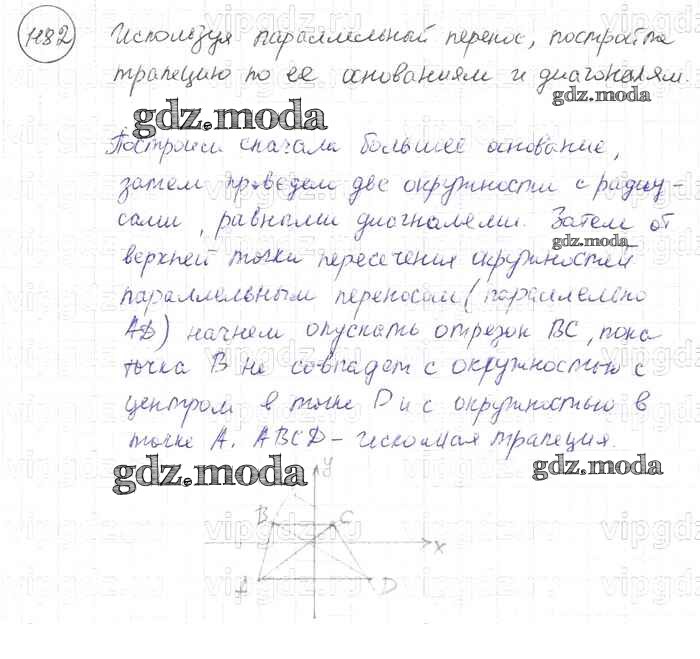 1182 Используя параллельный перенос, постройте
трапецию по ее основаниям и диагоналям.
gdz.moda
gdz.moda
Построим сначала большее основание,
затем проведем две окружности с радиу-
сами, равными диагналями. Затем от
gdz.moda
верхней точки пересечения окружностей
параллельным переносом (параллельно
AD) начнем опускать отрезок BC, пока
точка B не совпадет с окружностью с
центром в точке D и с окружностью в
точке A. ABCD - искомая трапеция.
gdz.moda
gdz.moda
y
B C
x
A D